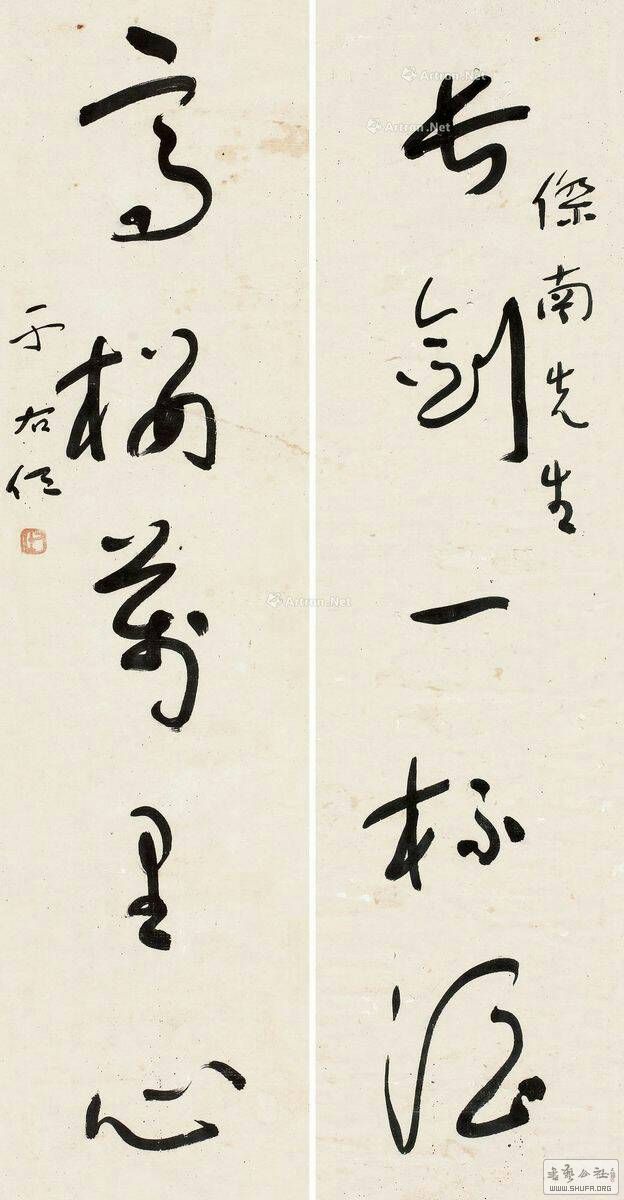 傑南先生
長劍一杯酒
高樓萬里心
于右任
Artron.Net
Artron.Net
Artron.Net
WWW.SHUFA.ORG